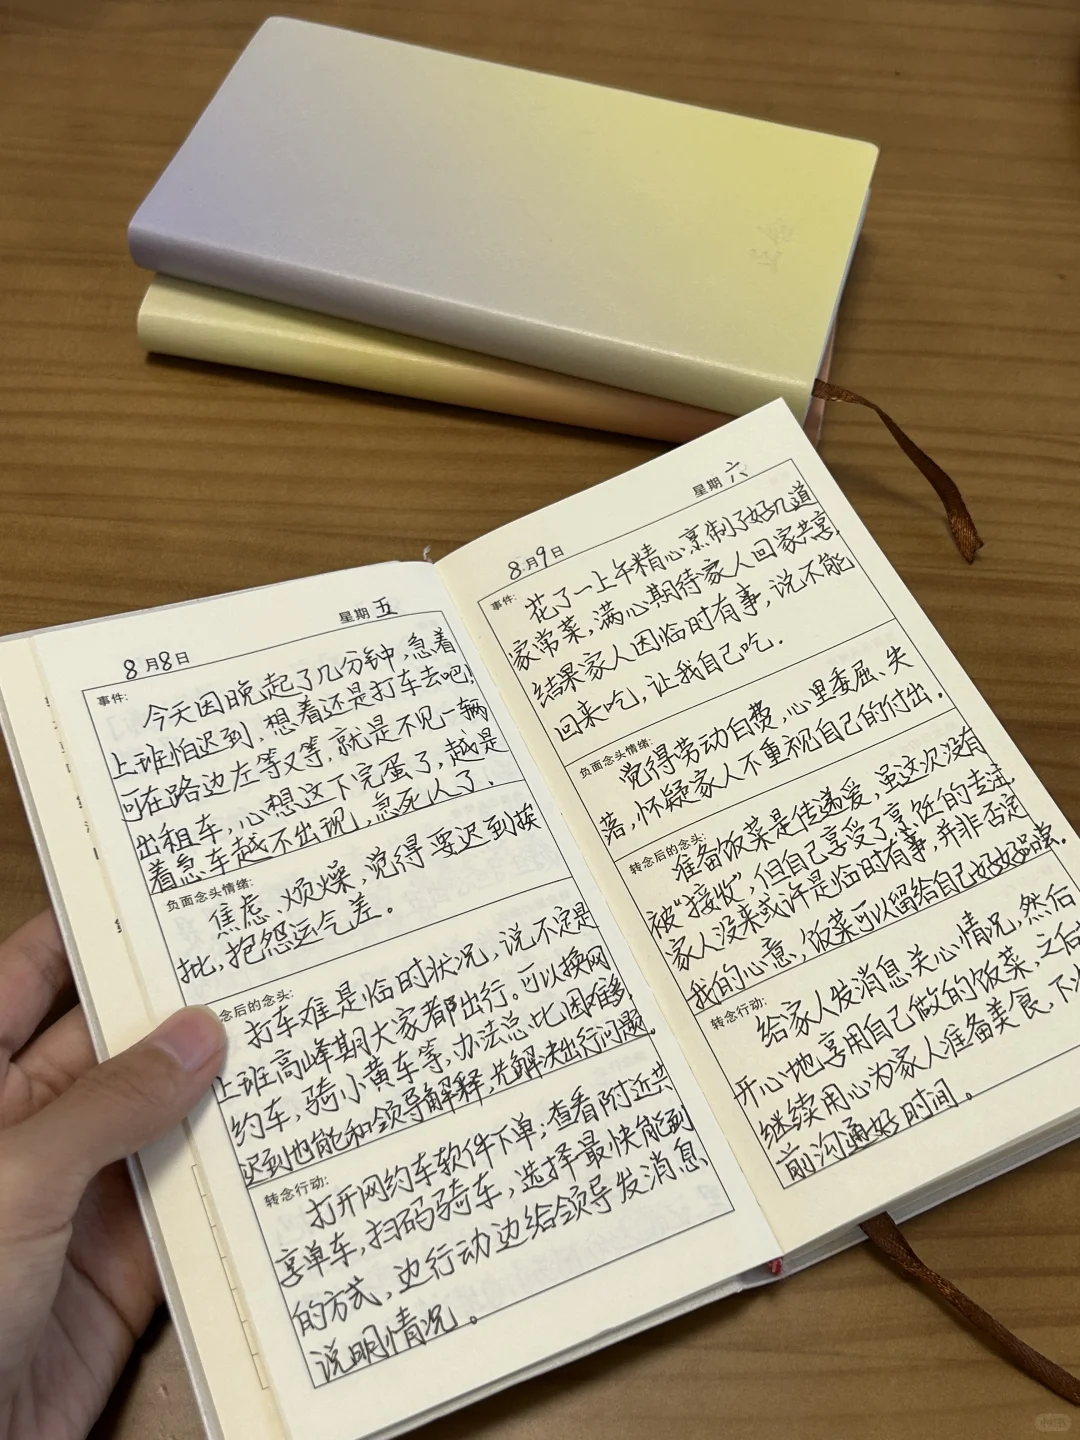 8月8日
星期五
事件:
今天因晚起了几分钟,急着
上班怕迟到,想着还是打车去吧!
可在路边左等又等,就是不见一辆
出租车,心想这下完蛋了,越是
着急车越不出现,急死人了。
负面念头情绪:
焦虑、烦燥,觉得要迟到挨
批,抱怨运气差。
念后的念头:
打车难是临时状况,说不定是
上班高峰期大家都出行。可以换网
约车,骑小黄车等,办法总比困难多,
迟到也能和领导解释,先解决出行问题。
转念行动:
打开网约车软件下单;查看附近共
享单车,扫码骑车,选择最快能到
的方式,边行动边给领导发消息
说明情况。
8月9日
星期六
事件:
花了一上午精心烹制了好几道
家常菜,满心期待家人回家共享,
结果家人因临时有事,说不能
回来吃,让我自己吃.
负面念头情绪:
觉得劳动白费,心里委屈、失
落,怀疑家人不重视自己的付出.
转念后的念头:
准备饭菜是传递爱,虽这次没有
被“接收”,但自己享受了烹饪的专注
家人没来或许是临时有事,并非否定
我的心意,饭菜可以留给自己好好品尝.
转念行动:
给家人发消息关心情况,然后
开心地享用自己做的饭菜,之后
继续用心为家人准备美食,下次
前沟通好时间。